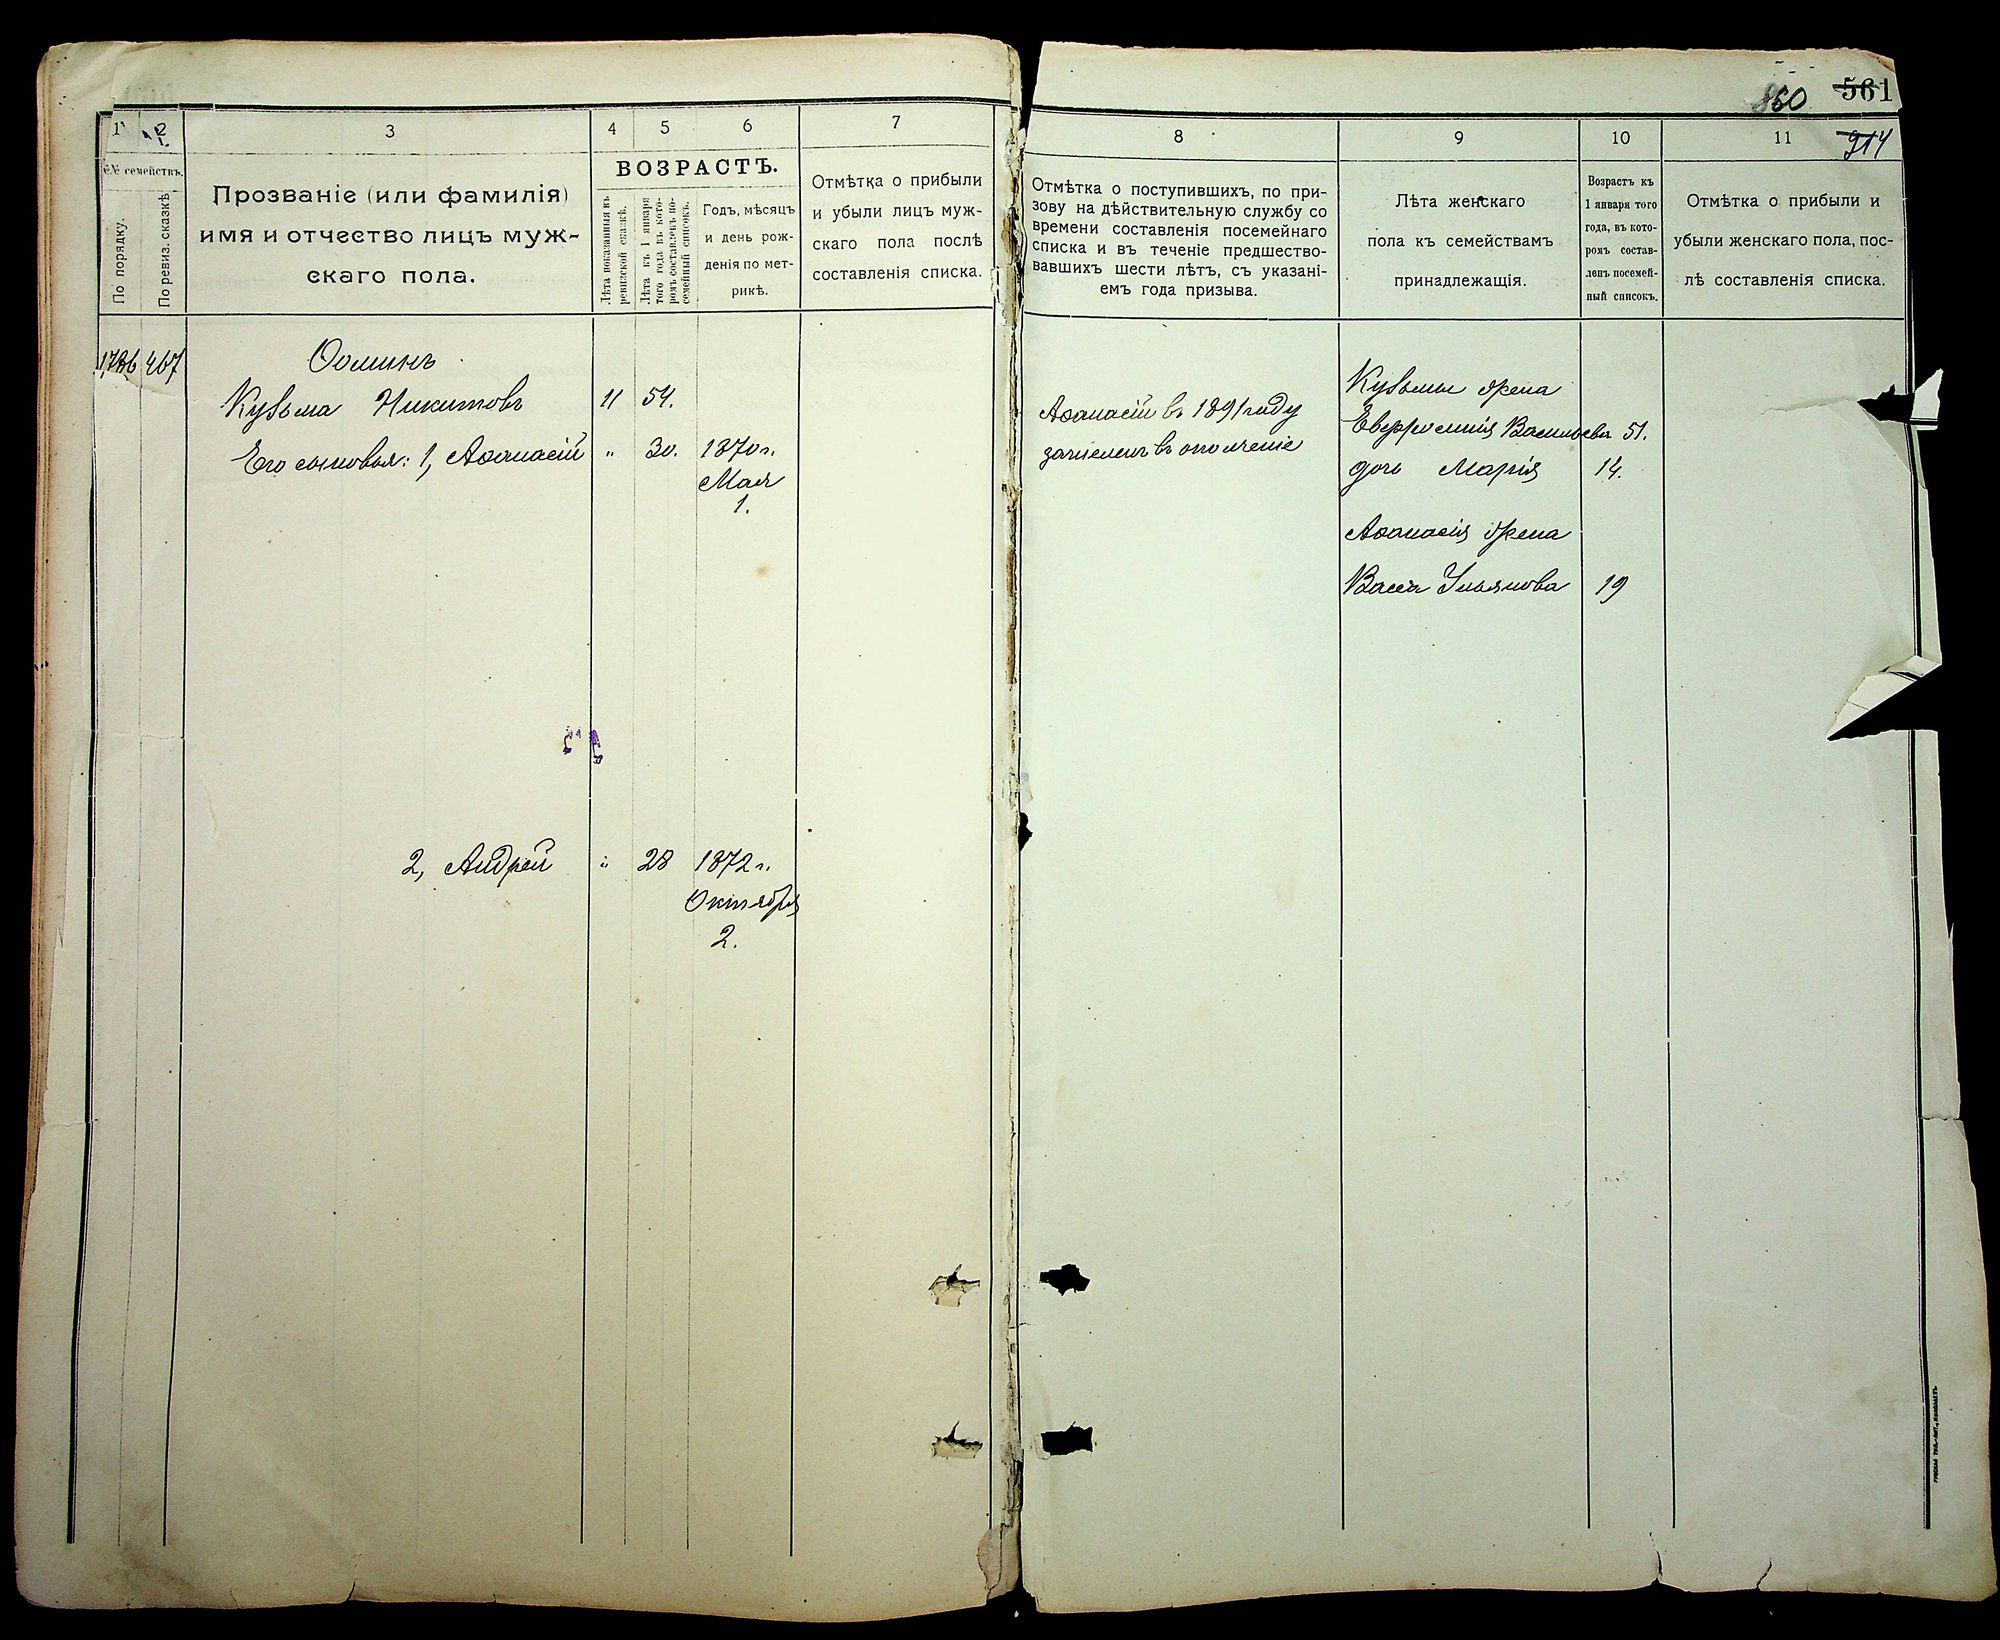 860 561
914
1 2 3 4 5 6 7
№№ семействъ.
По порядку.
По ревиз. сказкѣ
Прозваніе (или фамилія)
имя и отчество лицъ муж-
скаго пола.
ВОЗРАСТЪ.
Лѣта показанныя въ
ревизской сказкѣ.
Лѣта къ 1 января
того года въ кото-
ромъ составленъ по-
семейный списокъ.
Годъ, мѣсяцъ
и день рож-
денія по мет-
рикѣ.
Отмѣтка о прибыли
и убыли лицъ муж-
скаго пола послѣ
составленія списка.
8 9 10 11
Отмѣтка о поступившихъ, по при-
зову на дѣйствительную службу со
времени составленія посемейнаго
списка и въ теченіе предшество-
вавшихъ шести лѣтъ, съ указані-
емъ года призыва.
Лѣта женскаго
пола къ семействамъ
принадлежащія.
Возрастъ къ
1 января того
года, въ кото-
ромъ состав-
ленъ посемей-
ный списокъ.
Отмѣтка о прибыли и
убыли женскаго пола, пос-
лѣ составленія списка.
467 Ѳоминъ
Кузьма Никитовъ 11 54.
Его сыновья: 1, Аѳанасій " 30. 1870 г.
Мая
1.
2, Андрей " 28 1872 г.
Октября
2.
Аѳанасій въ 1891 году
зачисленъ въ ополченіе
Кузьмы жена
Евфросинія Васильева 51.
дочь Марія 14.
Аѳанасія жена
Васса Ульянова 19